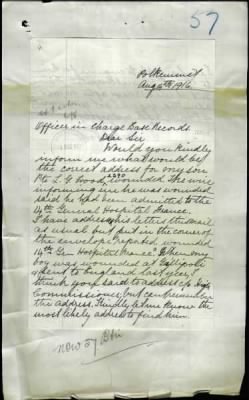 57
Aug 14th 1916
Officer in Charge Base Records
Dear Sir
Would you kindly
inform me what would be
the correct address for my son
Pte L G Wood 2290 wounded. The wire
informing me he was wounded
said he had been admitted to the
14th General Hospital France.
I have addressed his letters
as usual but put in the corner of
the envelope reported wounded
14th Gen Hospital France. When my
boy was wounded at Gallipoli
& sent to England last year I
think you said to address c/o High
Commissioner, but can't remember
the address. Kindly let me know the
most likely address to find him.
now 57 Bn